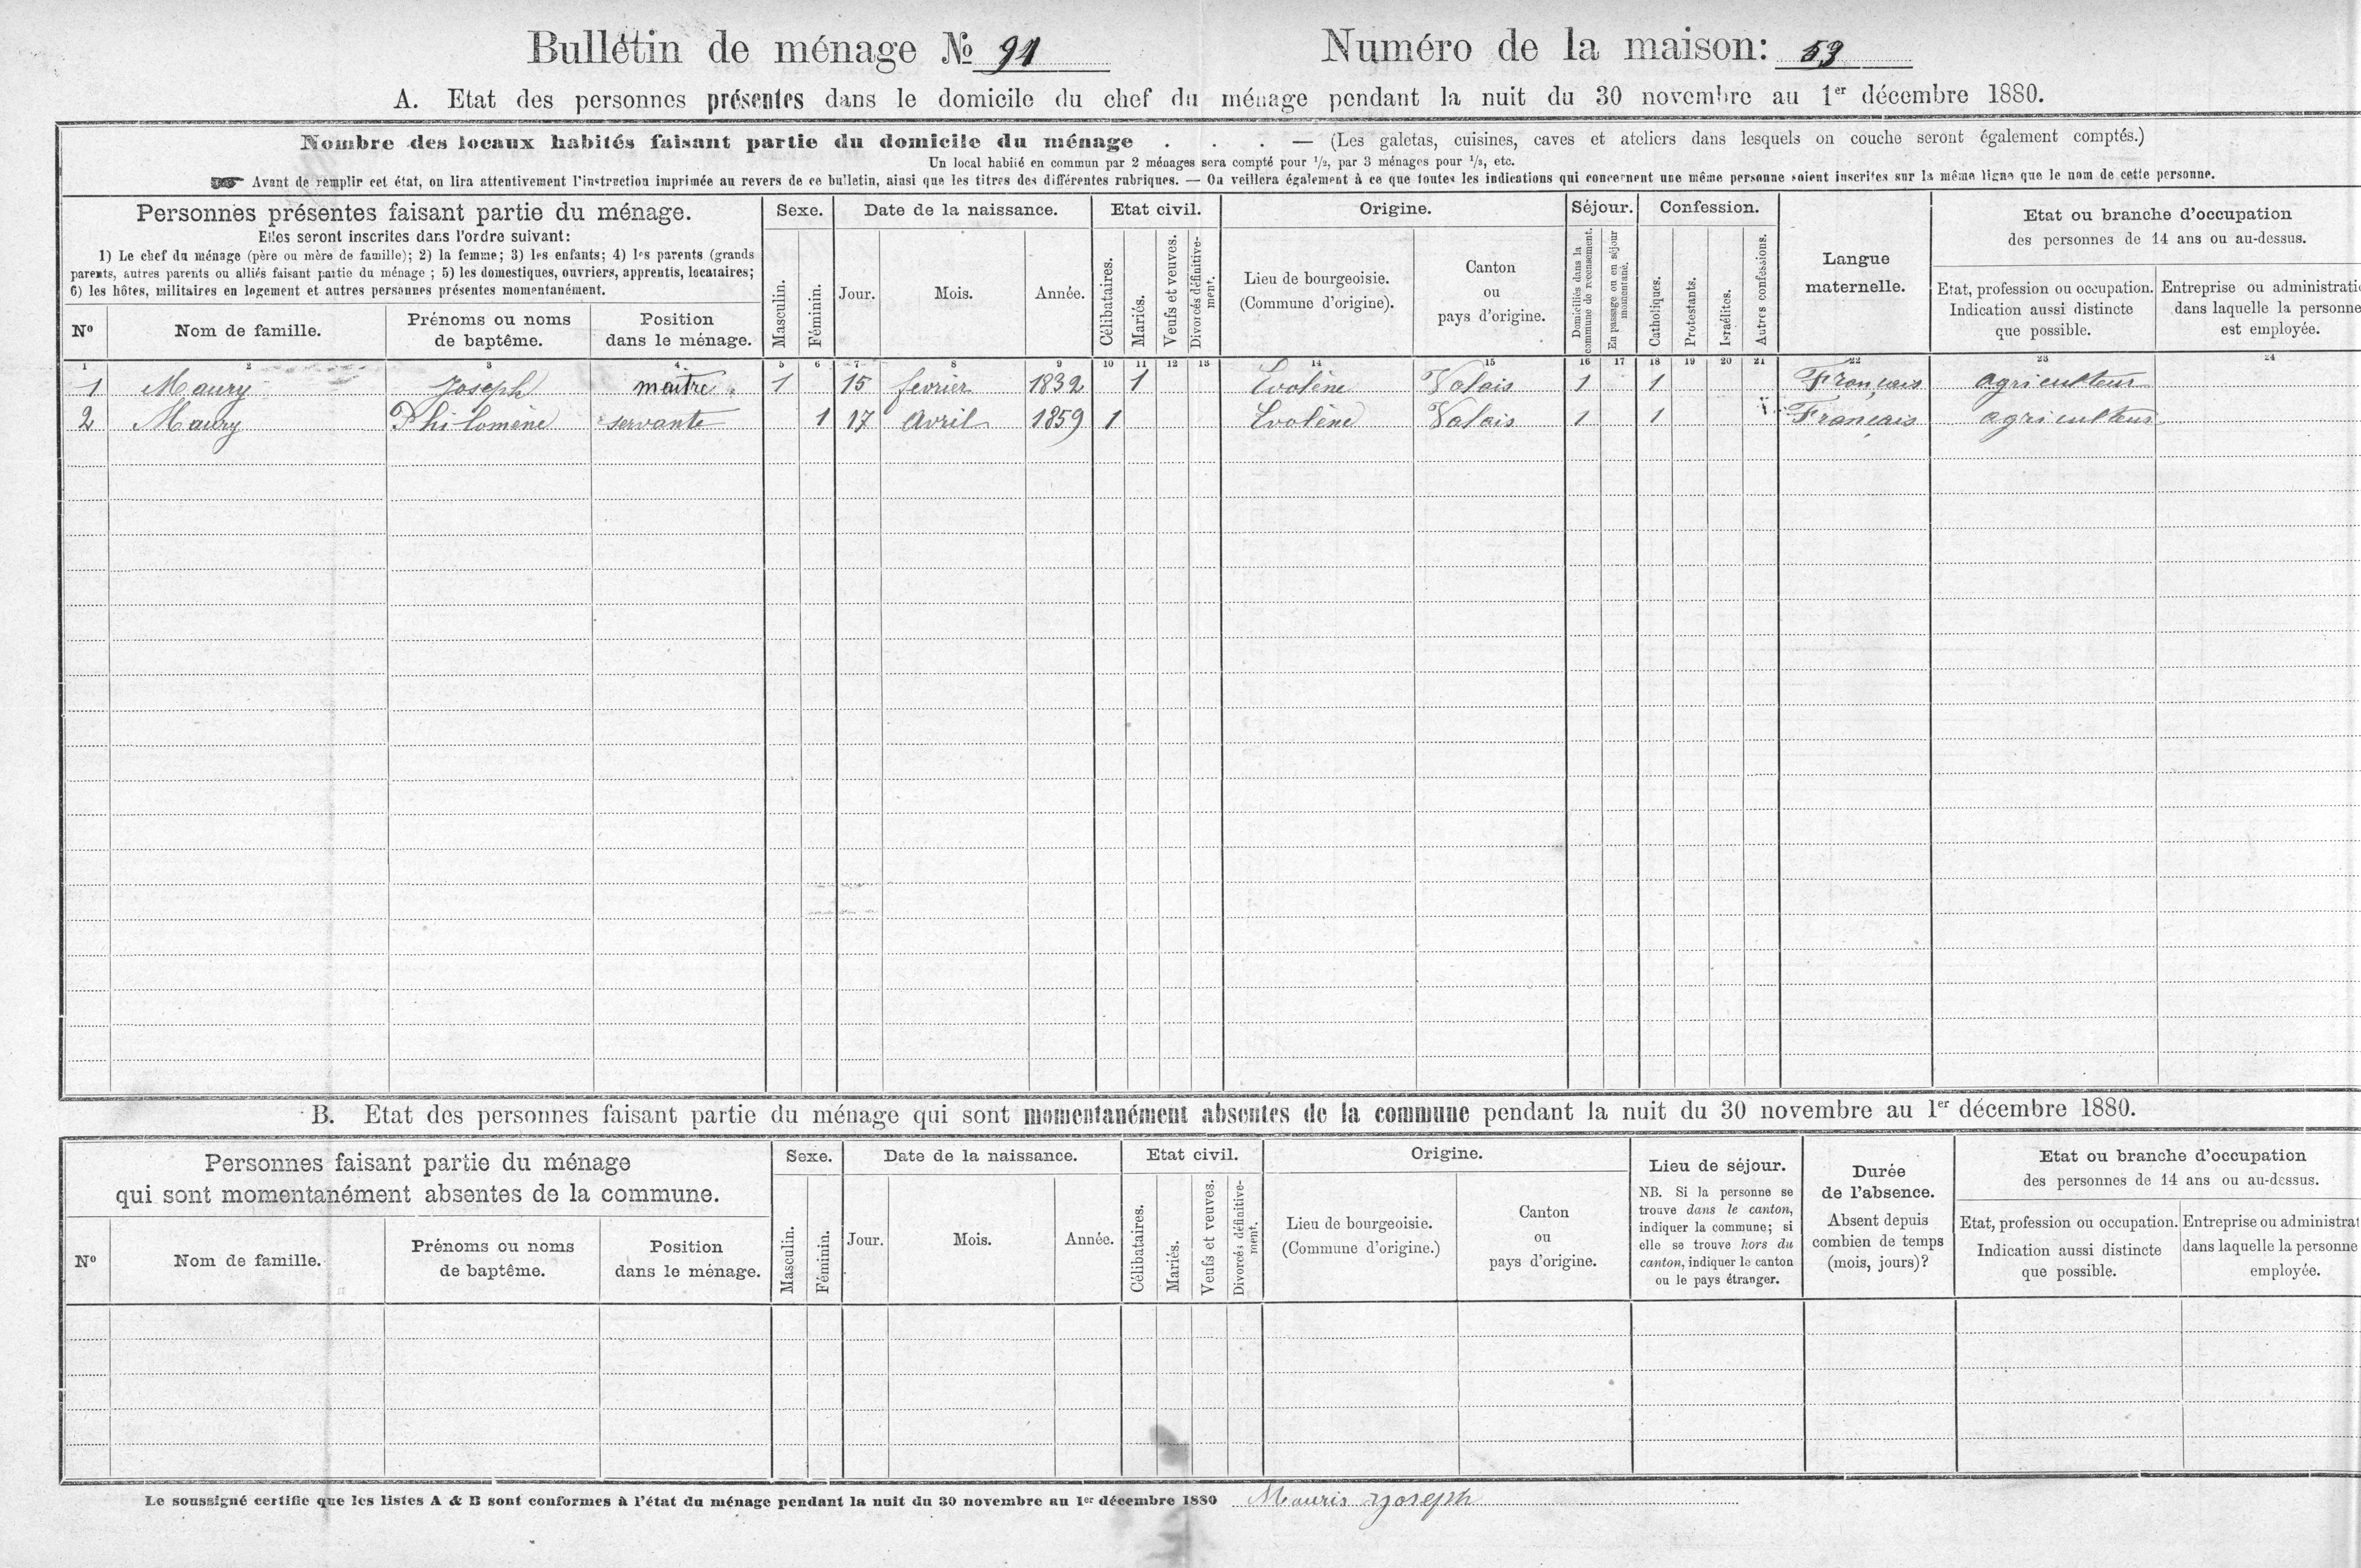 Bulletin de ménage № 91 Numéro de la maison: 53
A. Etat des personnes présentes dans le domicile du chef du ménage pendant la nuit du 30 novembre au 1er décembre 1880.
Nombre des locaux habités faisant partie du domicile du ménage . . . — (Les galetas, cuisines, caves et ateliers dans lesquels on couche seront également comptés.)
Un local habité en commun par 2 ménages sera compté pour 1/2, par 3 ménages pour 1/3, etc.
☛ Avant de remplir cet état, on lira attentivement l'instruction imprimée au revers de ce bulletin, ainsi que les titres des différentes rubriques. — On veillera également à ce que toutes les indications qui concernent une même personne soient inscrites sur la même ligne que le nom de cette personne.
Personnes présentes faisant partie du ménage.
Elles seront inscrites dans l'ordre suivant:
1) Le chef du ménage (père ou mère de famille); 2) la femme; 3) les enfants; 4) les parents (grands
parents, autres parents ou alliés faisant partie du ménage ; 5) les domestiques, ouvriers, apprentis, locataires;
6) les hôtes, militaires en logement et autres personnes présentes momentanément.
Nº Nom de famille.
Prénoms ou noms
de baptême.
Position
dans le ménage.
Sexe.
Masculin.
Féminin.
Date de la naissance.
Jour. Mois. Année.
Etat civil.
Célibataires.
Mariés.
Veufs et veuves.
Divorcés définitive-
ment.
Origine.
Lieu de bourgeoisie.
(Commune d'origine).
Canton
ou
pays d'origine.
Séjour.
Domiciliés dans la
commune de recensement.
En passage ou en séjour
momentané.
Confession.
Catholiques.
Protestants.
Israélites.
Autres confessions.
Langue
maternelle.
Etat ou branche d'occupation
des personnes de 14 ans ou au-dessus.
Etat, profession ou occupation.
Indication aussi distincte
que possible.
Entreprise ou administrati
dans laquelle la personne
est employée.
1 2 3 4 5 6 7 8 9 10 11 12 13 14 15 16 17 18 19 20 21 22 23 24
1 Maury Joseph maitre 1 15 fevrier 1832 1 Evolène Valais 1 1 Français agriculteur
2 Maury Philomène servante 1 17 Avril 1859 1 Evolène Valais 1 1 Français agriculteur
B. Etat des personnes faisant partie du ménage qui sont momentanément absentes de la commune pendant la nuit du 30 novembre au 1er décembre 1880.
Personnes faisant partie du ménage
qui sont momentanément absentes de la commune.
Nº Nom de famille.
Prénoms ou noms
de baptême.
Position
dans le ménage.
Sexe.
Masculin.
Féminin.
Date de la naissance.
Jour. Mois. Année.
Etat civil.
Célibataires.
Mariés.
Veufs et veuves.
Divorcés définitive-
ment.
Origine.
Lieu de bourgeoisie.
(Commune d'origine.)
Canton
ou
pays d'origine.
Lieu de séjour.
NB. Si la personne se
trouve dans le canton,
indiquer la commune; si
elle se trouve hors du
canton, indiquer le canton
ou le pays étranger.
Durée
de l'absence.
Absent depuis
combien de temps
(mois, jours)?
Etat ou branche d'occupation
des personnes de 14 ans ou au-dessus.
Etat, profession ou occupation.
Indication aussi distincte
que possible.
Entreprise ou administrat
dans laquelle la personne
employée.
Le soussigné certifie que les listes A & B sont conformes à l'état du ménage pendant la nuit du 30 novembre au 1er décembre 1880 Mauris Joseph